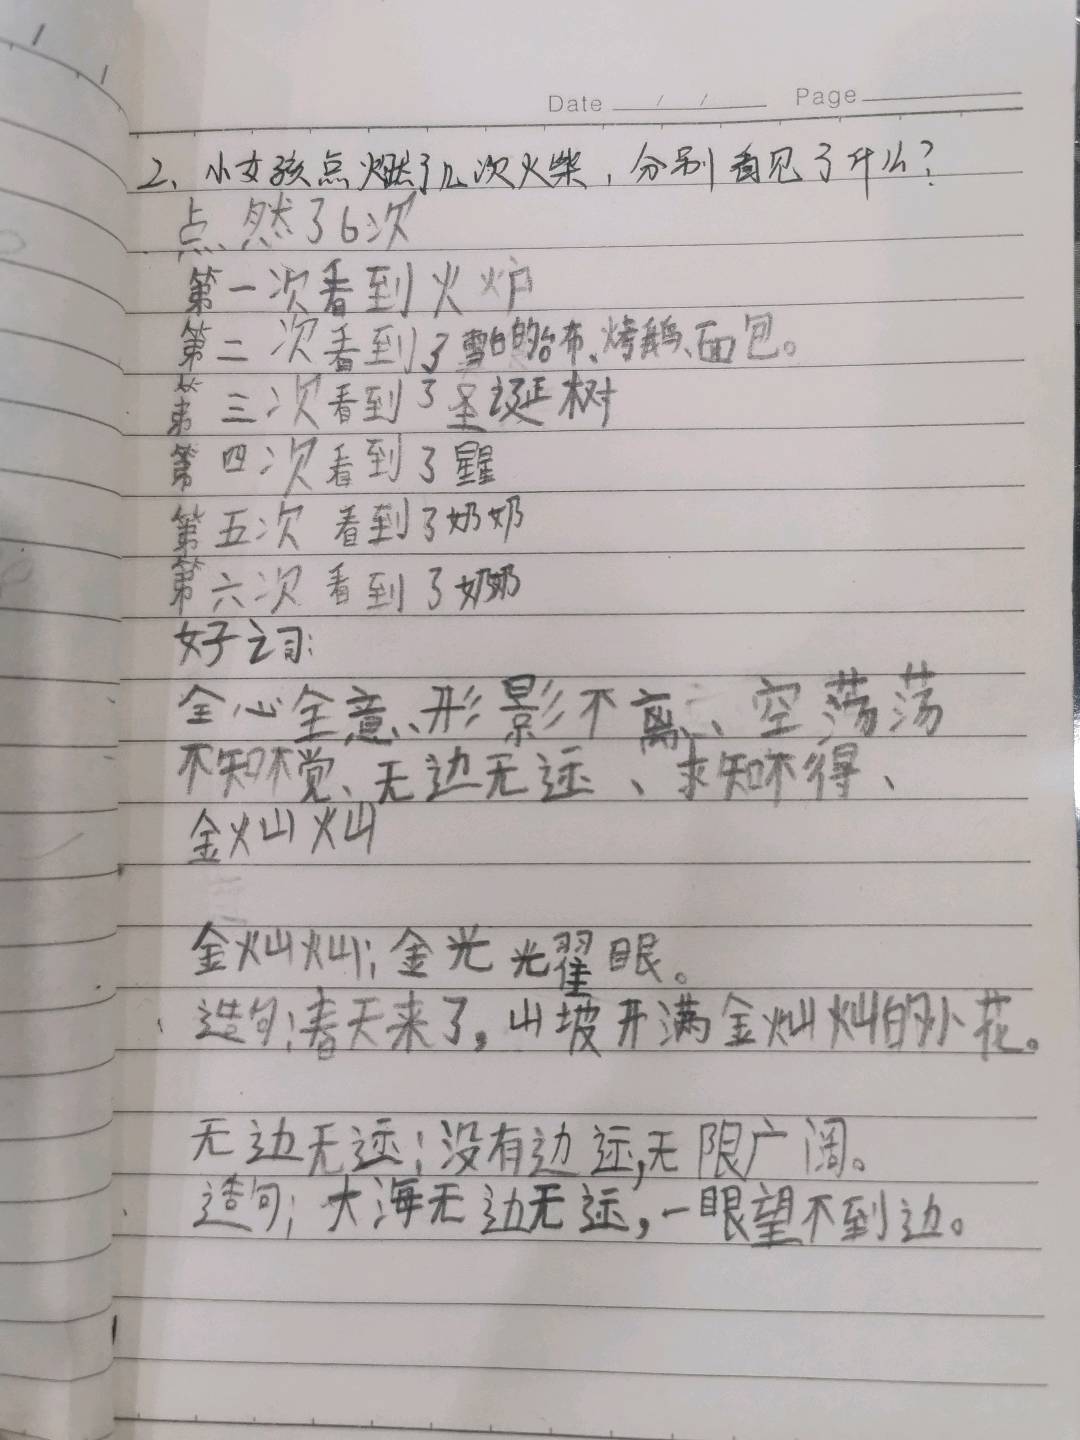 Date / / Page
2、小女孩点燃了几次火柴，分别看见了什么？
点然了6次
第一次看到火炉
第二次看到了雪白的台布、烤鹅、面包。
第三次看到了圣诞树
第四次看到了星星
第五次看到了奶奶
第六次看到了奶奶
好词:
全心全意、形影不离、空荡荡
不知不觉、无边无际、求知不得、
金灿灿
金灿灿;金光光耀眼。
造句;春天来了,山坡开满金灿灿的小花。
无边无际;没有边际,无限广阔。
造句;大海无边无际,一眼望不到边。